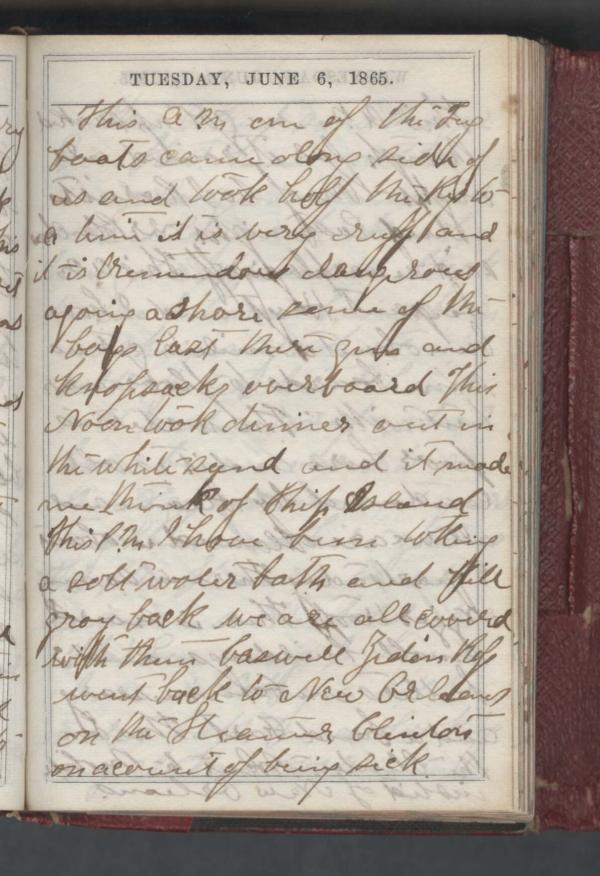 TUESDAY, JUNE 6, 1865.
This A M one of the Tug
boats came along side of
us and took half the Rg to
a time it is very ruff and
it is tremendous dangerous
agoing ashore some of the
boys last there guns and
knapsacks overboard This
Noon took dinner out in
the white sand and it made
me think of Ship Island
this P.M I have been taking
a salt water bath and kill
gray back we are all coverd
with them
went back to New Orleans
on the Steamer Clinton
on account of being sick